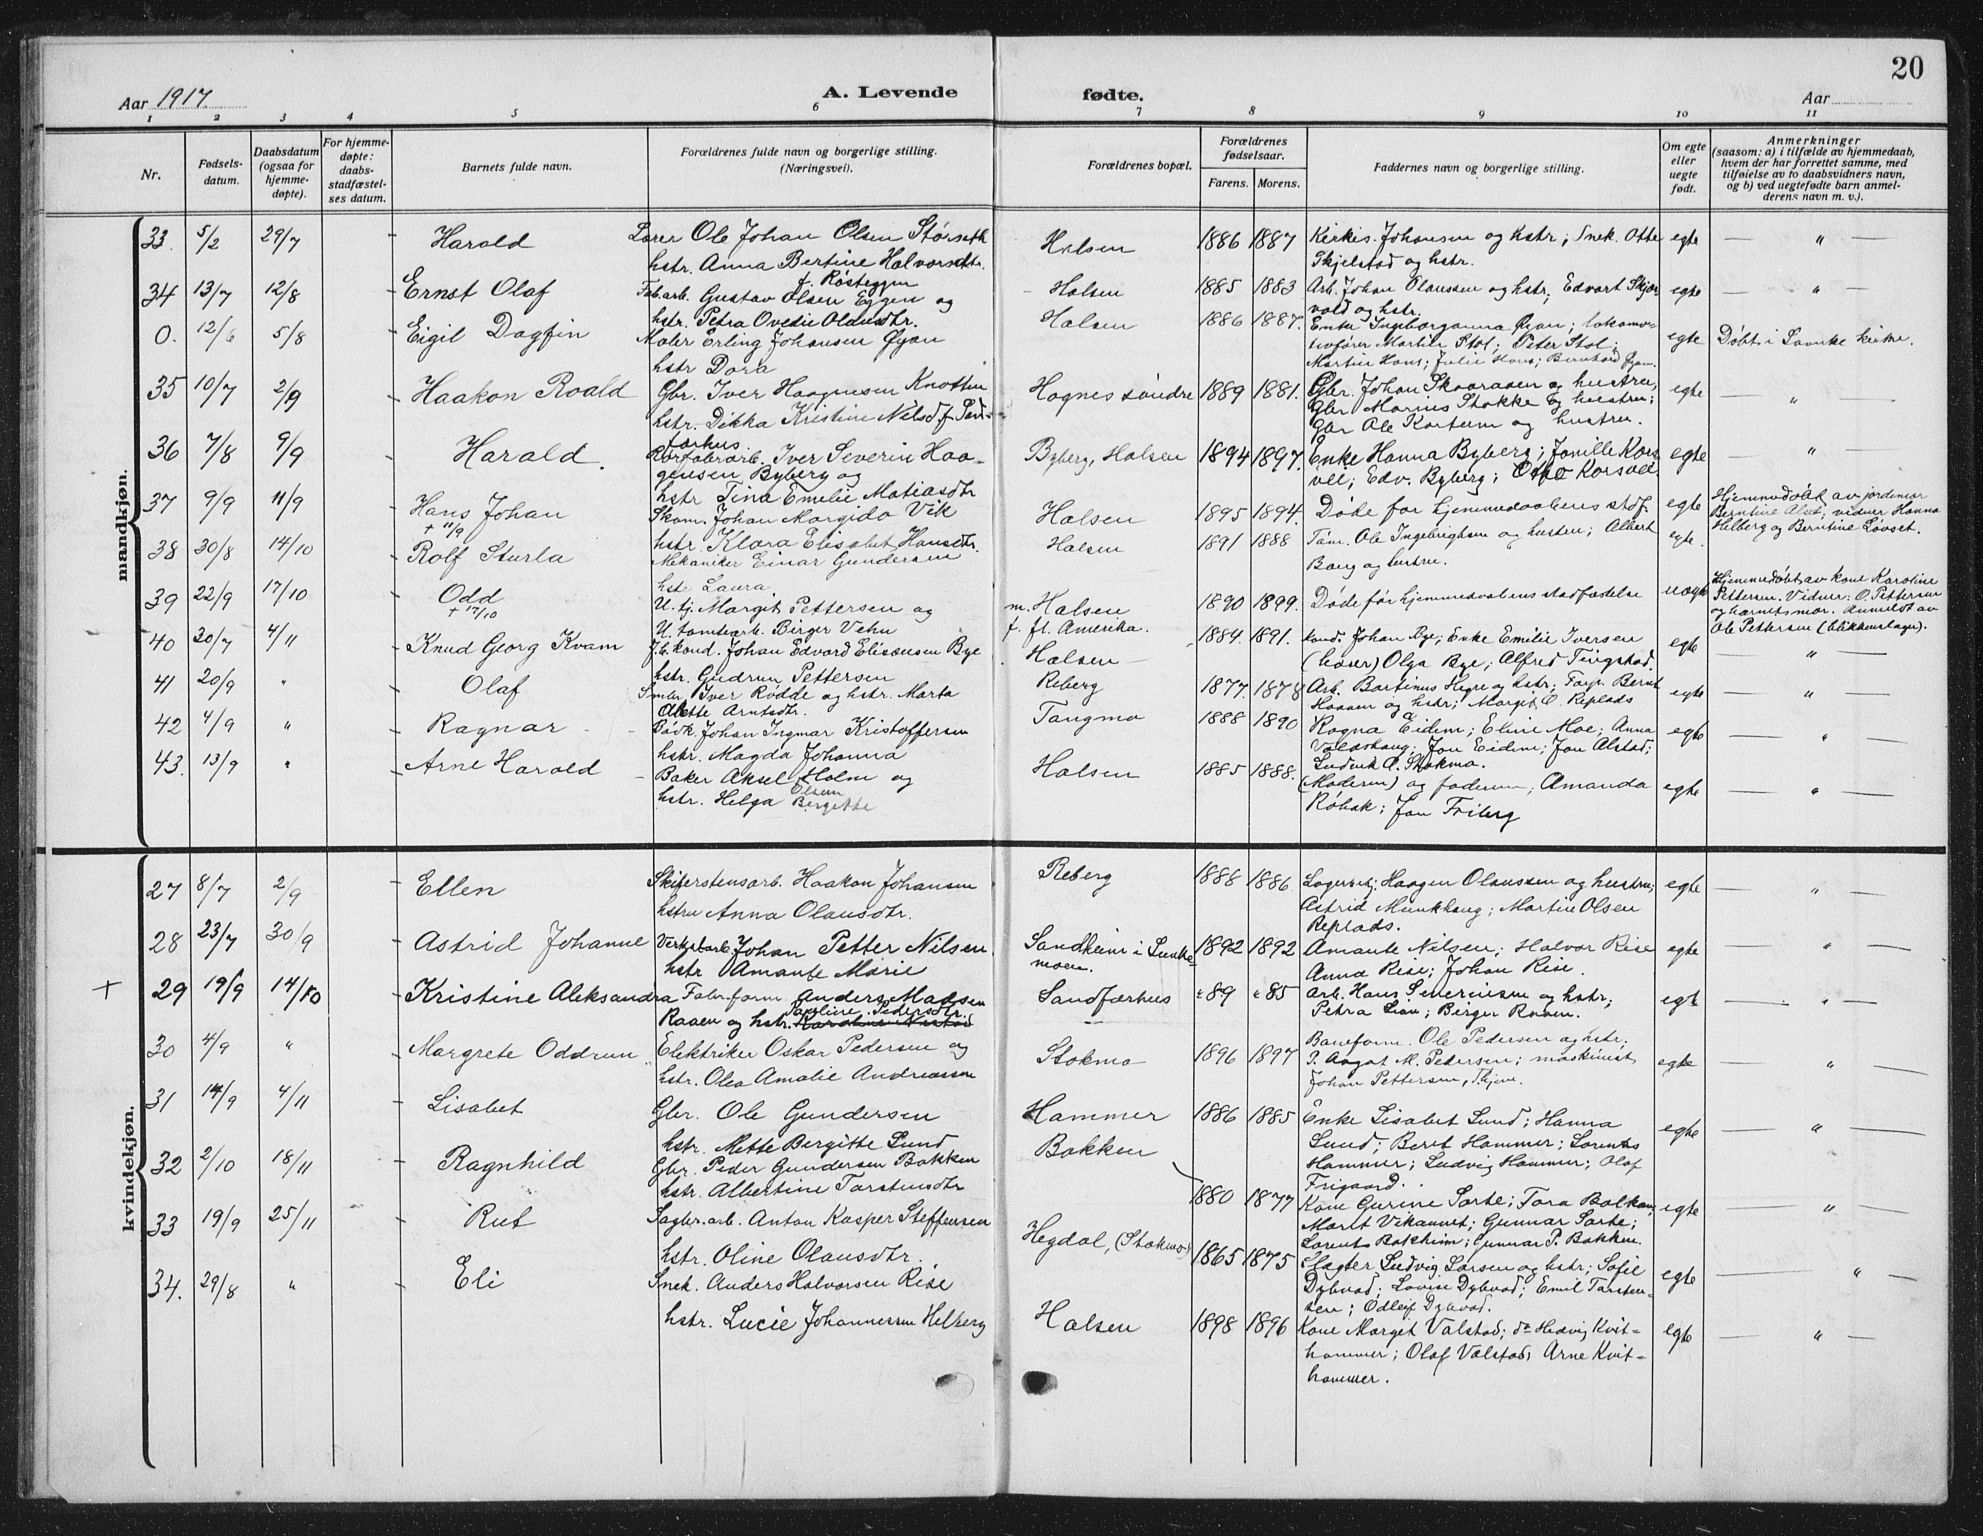 20
Aar 1917.
A. Levende fødte.
Aar
1 2 3 4 5 6 7 8 9 10 11
Nr.
Fødsels-
datum.
Daabsdatum
(ogsaa for
hjemme-
døpte).
For hjemme-
døpte:
daabs-
stadfæstel-
ses datum.
Barnets fulde navn.
Forældrenes fulde navn og borgerlige stilling.
(Næringsvei).
Forældrenes bopæl.
Forældrenes
fødselsaar.
Farens. Morens.
Faddernes navn og borgerlige stilling.
Om egte
eller
uegte
født.
Anmerkninger
(saasom: a) i tilfælde av hjemmedaab,
hvem der har forrettet samme, med
tilføielse av to daabsvidners navn,
og b) ved uegtefødte barn anmel-
derens navn m. v.).
mandkjøn.
33. 5/2 29/7 - Harald
Lærer Ole Johan Olsen Størseth
hstr. Anna Bertine Halvorsdtr.
f. Røsteggen
Halsen 1886 1887
Kirkes. Johansen og hstr; Snek. Otte
Skjelstad og hstr.
egte — " —
34 13/7 12/8 - Ernst Olaf
Fab.arb. Gustav Olsen Eggen og
hstr. Petra Ovedie Olausdtr.
Halsen 1885 1883
Arb. Johan Olaussen og hstr; Edvart Skjer-
vold og hstr.
egte — " —
0. 12/6 5/8 - Eigil Dagfin
Maler Erling Johansen Øyan
hstr Dora
Halsen 1886 1887.
Enke Ingeborganna Øyan; lokomo-
tivfører Martin Stol; Peter Stol;
Martin Hans; Julie Hans; Bernhard Øyan.
egte Døbt i Levanger kirke.
35 10/7 2/9 - Haakon Roald
Gbr. Iver Haagensen Knotten
hstr. Dikka Kristine Nilsd. f. Sand-
færhus.
Hognes søndre 1889 1881.
Gbr. Johan Skaaraaen og hustru,
Gbr Marius Stokke og hustru;
Gbr Ole Kartum og hustru.
egte — " —
36 7/8 9/9 Harald.
Iver Severin Haa-
gensen Byberg og
hstr Tina Emelie Matiasdtr
Byberg, Halsen 1894 1897.
Enke Hanna Byberg; Jonille Kors-
vel; Edv. Byberg; Otto Korsvel.
egte — " —
37 9/9 11/9 - Hans Johan
+ 11/9
Skom. Johan Margido Vik
hstr. Klara Elisabet Hansdtr.
Halsen 1895 1894.
Døde før hjemmedaabens stdf.
egte Hjemmedøbt av jordemor
Berntine Alset, vidner Hanna
Helberg og Berntine Løvset.
38 30/8 14/10 - Rolf Sturla
Mekaniker Einar Gundersen
hstr Laura
Halsen 1891 1888
Tøm. Ole Ingebrigtsen og hustru; Albert
Bang og hustru.
egte.
39 22/9 17/10 Odd
+ 17/10
U. tj. Margit Pettersen og
U. Birger Vehn
m. Halsen
f. fl. Amerika.
1890 1899.
Døde før hjemmedaabens stadfæstelse
uegte Hjemmedøbt av kone Karoline
Pettersen. Vidner: O. Pettersen
og barnets mor. Anmeldt av
Ole Pettersen (blikkenslager).
40 30/7 4/11 - Knud Georg Kvam
J.b.kond. Johan Edvard Elisæusen Bye
hstr. Gudrun Pettersen
Halsen 1884. 1891.
Kond. Johan Bye; Enke Emilie Iversen
Olga Bye; Alfred Tingstad.
egte — " —
41 20/9 " Olaf
Smbr. Iver Rødde og hstr. Marta
Alette Arntsdtr.
Reberg 1877. 1878
Arb. Bartinus Hegre og hstr; Forp. Bernt
Haaven og hstr; Margit O. Replads
egte — " —
42 4/9 " - Ragnar
Bødk. Johan Ingmar Kristoffersen
hstr. Magda Johanna
Tangmo 1888 1890
Ragna Eidem; Eline Moe; Anna
Valdshaug; Jon Eidem; Jon Alstad;
Ludvik A. Stokmo.
egte — " —
43. 13/9 " - Arne Harald
Baker Aksel Holm og
hstr. Helga Olsen
Bergitte
Halsen 1885 1888.
(Moderen) og faderen; Amanda
Røbak; Jon Friberg
egte — " —
kvindekjøn.
27 8/7 2/9 - Ellen
Skiferstensarb. Haakon Johansen
hstru Anna Olausdtr.
Reberg 1888 1886.
Lagerbetj. Haagen Olaussen og hustru;
Astrid Munkhaug; Martin Olsen
Replads.
egte — " —
28 23/7 30/9 - Astrid Johanne
Verkstarb. Johan Petter Nilsen
hstr Amante Marie
Sandheim i Lunke-
moen.
1892 1892
Amante Nilsen; Halvor Rise
Anna Rise; Johan Rise.
egte — " —
+ 29 19/9 14/10 - Kristine Aleksandra
Fabr.form. Anders Madsen
Raaen og hstr. Pauline Pedersdtr.
Sandfærhus "89 "85
Arb. Hans Severinsen og hstr;
Petra Lian; Birger Raaen.
egte — " —
30 4/9 " Margrete Oddrun
Elektriker Oskar Pedersen og
hstr. Olea Amalie Andreassen
Stokmo 1896 1897
Baneform. Ole Pedersen og hstr;
P. Aagot M. Pedersen; maskinist
Johan Pettersen, Thjem.
egte — " —
31 14/9 4/11 - Lisabet
Gbr. Ole Gundersen
hstr. Mette Bergitte Lund
Hammer 1886 1885
Enke Lisabet Lund; Hanna
Lund; Beret Hammer; Lorents
Hammer; Ludvig Hammer; Olaf
Frigaard.
egte — " —
32 2/10 18/11 - Ragnhild
Gbr. Peder Gundersen Bakken
hstr. Albertine Tarstensdtr
Bakken 1880 1877
Kone Gurine Sarte; Tora Balkan;
Marit Vikannet; Gunnar Sarte;
Lorents Bakheim; Gunnar P. Bakken.
egte — " —
33 19/9 25/11 - Rut
Sagbr.arb. Anton Kasper Steffensen
hstr. Oline Olausdtr.
Hegdal, (Stokmo) 1865 1875
Slagter Ludvig Larsen og hstr; Sofie
Dybvad; Lovise Dybvad; Emil Tarsten-
sen; Odleif Dybvad.
egte — " —
34. 29/8 " - Eli
Snek. Anders Halvorsen Rise
hstr. Lucie Johannessen Helberg
Halsen 1898 1896
Kone Marget Valstad; do Hedvig Kvit-
hammer; Olaf Valstad; Arne Kvit-
hammer.
egte — " —